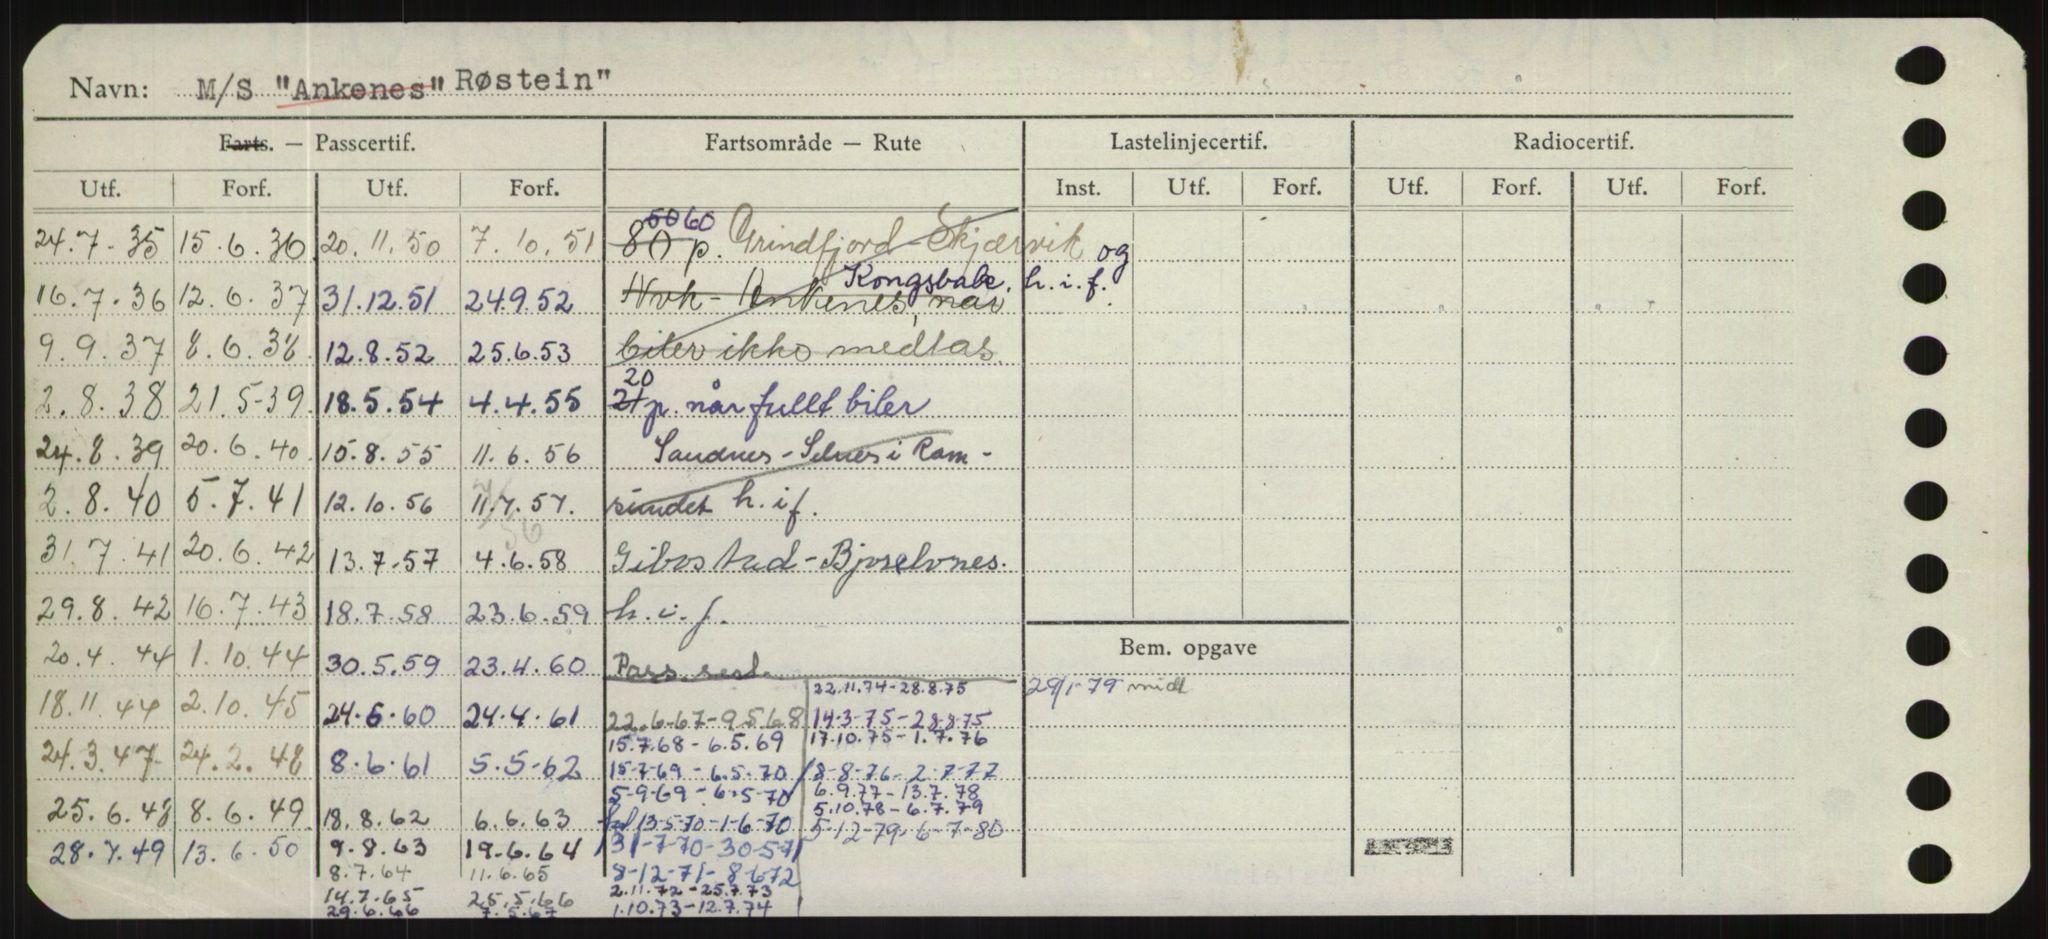 Navn: M/S "Ankenes" Røstein"
Farts. — Passcertif. Fartsområde — Rute Lastelinjecertif. Radiocertif.
Utf. Forf. Utf. Forf. Inst. Utf. Forf. Utf. Forf. Utf. Forf.
50 60
24.7-35 15.6.36 20.11.50 7.10.51 80 p. Grindfjord-Skjærvik og
Kongsbak. h.i.f.
16.7.36 12.6.37 31.12.51 24.9.52 Nvk-Ankenes, når
9.9.37 8.6.38. 12.8.52 25.6.53 biler ikke medtas.
20
2.8.38 21.5-39. 18.5.54 4.4.55 21 p. når fullt biler
24.8.39 20.6.40. 15.8.55 11.6.56 Sandnes-Selnes i Ram-
2.8.40 5.7.41 12.10.56 11.7.57. sundet h.i.f.
7/56
31.7.41 20.6.42 13.7.57 4.6.58 Gibostad-Bjorelvnes.
29.8.42 16.7.43 18.7.58 23.6.59 h.i.f.
20.4.44 1.10.44 30.5.59 23.4.60 Pass. sert. Bem. opgave
22.11.74-28.8.75 29/1-79 midt
18.11.44 2.10.45 24.6.60 24.4.61 22.6-67-9.5.68 14-3-75-28-8-75
15.7.68-6.5.69 17.10.75-1.7.76
24.3.47- 24.2.48 8.6.61 5.5-62 15-7-69-6.5.70 18-8-76-2-7-77
5-9-69-6.5-70 6.9.77-13.7.78
25.6.48 8.6.49. 18.8.62 6.6.63 13-5-70-1-6-70 5.10.78-6.7.79
5-12-79-6-7-80
28.7.49 13.6.50 9.8.63 19.6.64 31-7-70-30-5-71
8.7.64 11.6.65 8-12-71-8-6-72
14.7.65 25.5.66 2.11.72-25.7.73
29.6.66 7.5.67 1.10.73-12.7.74